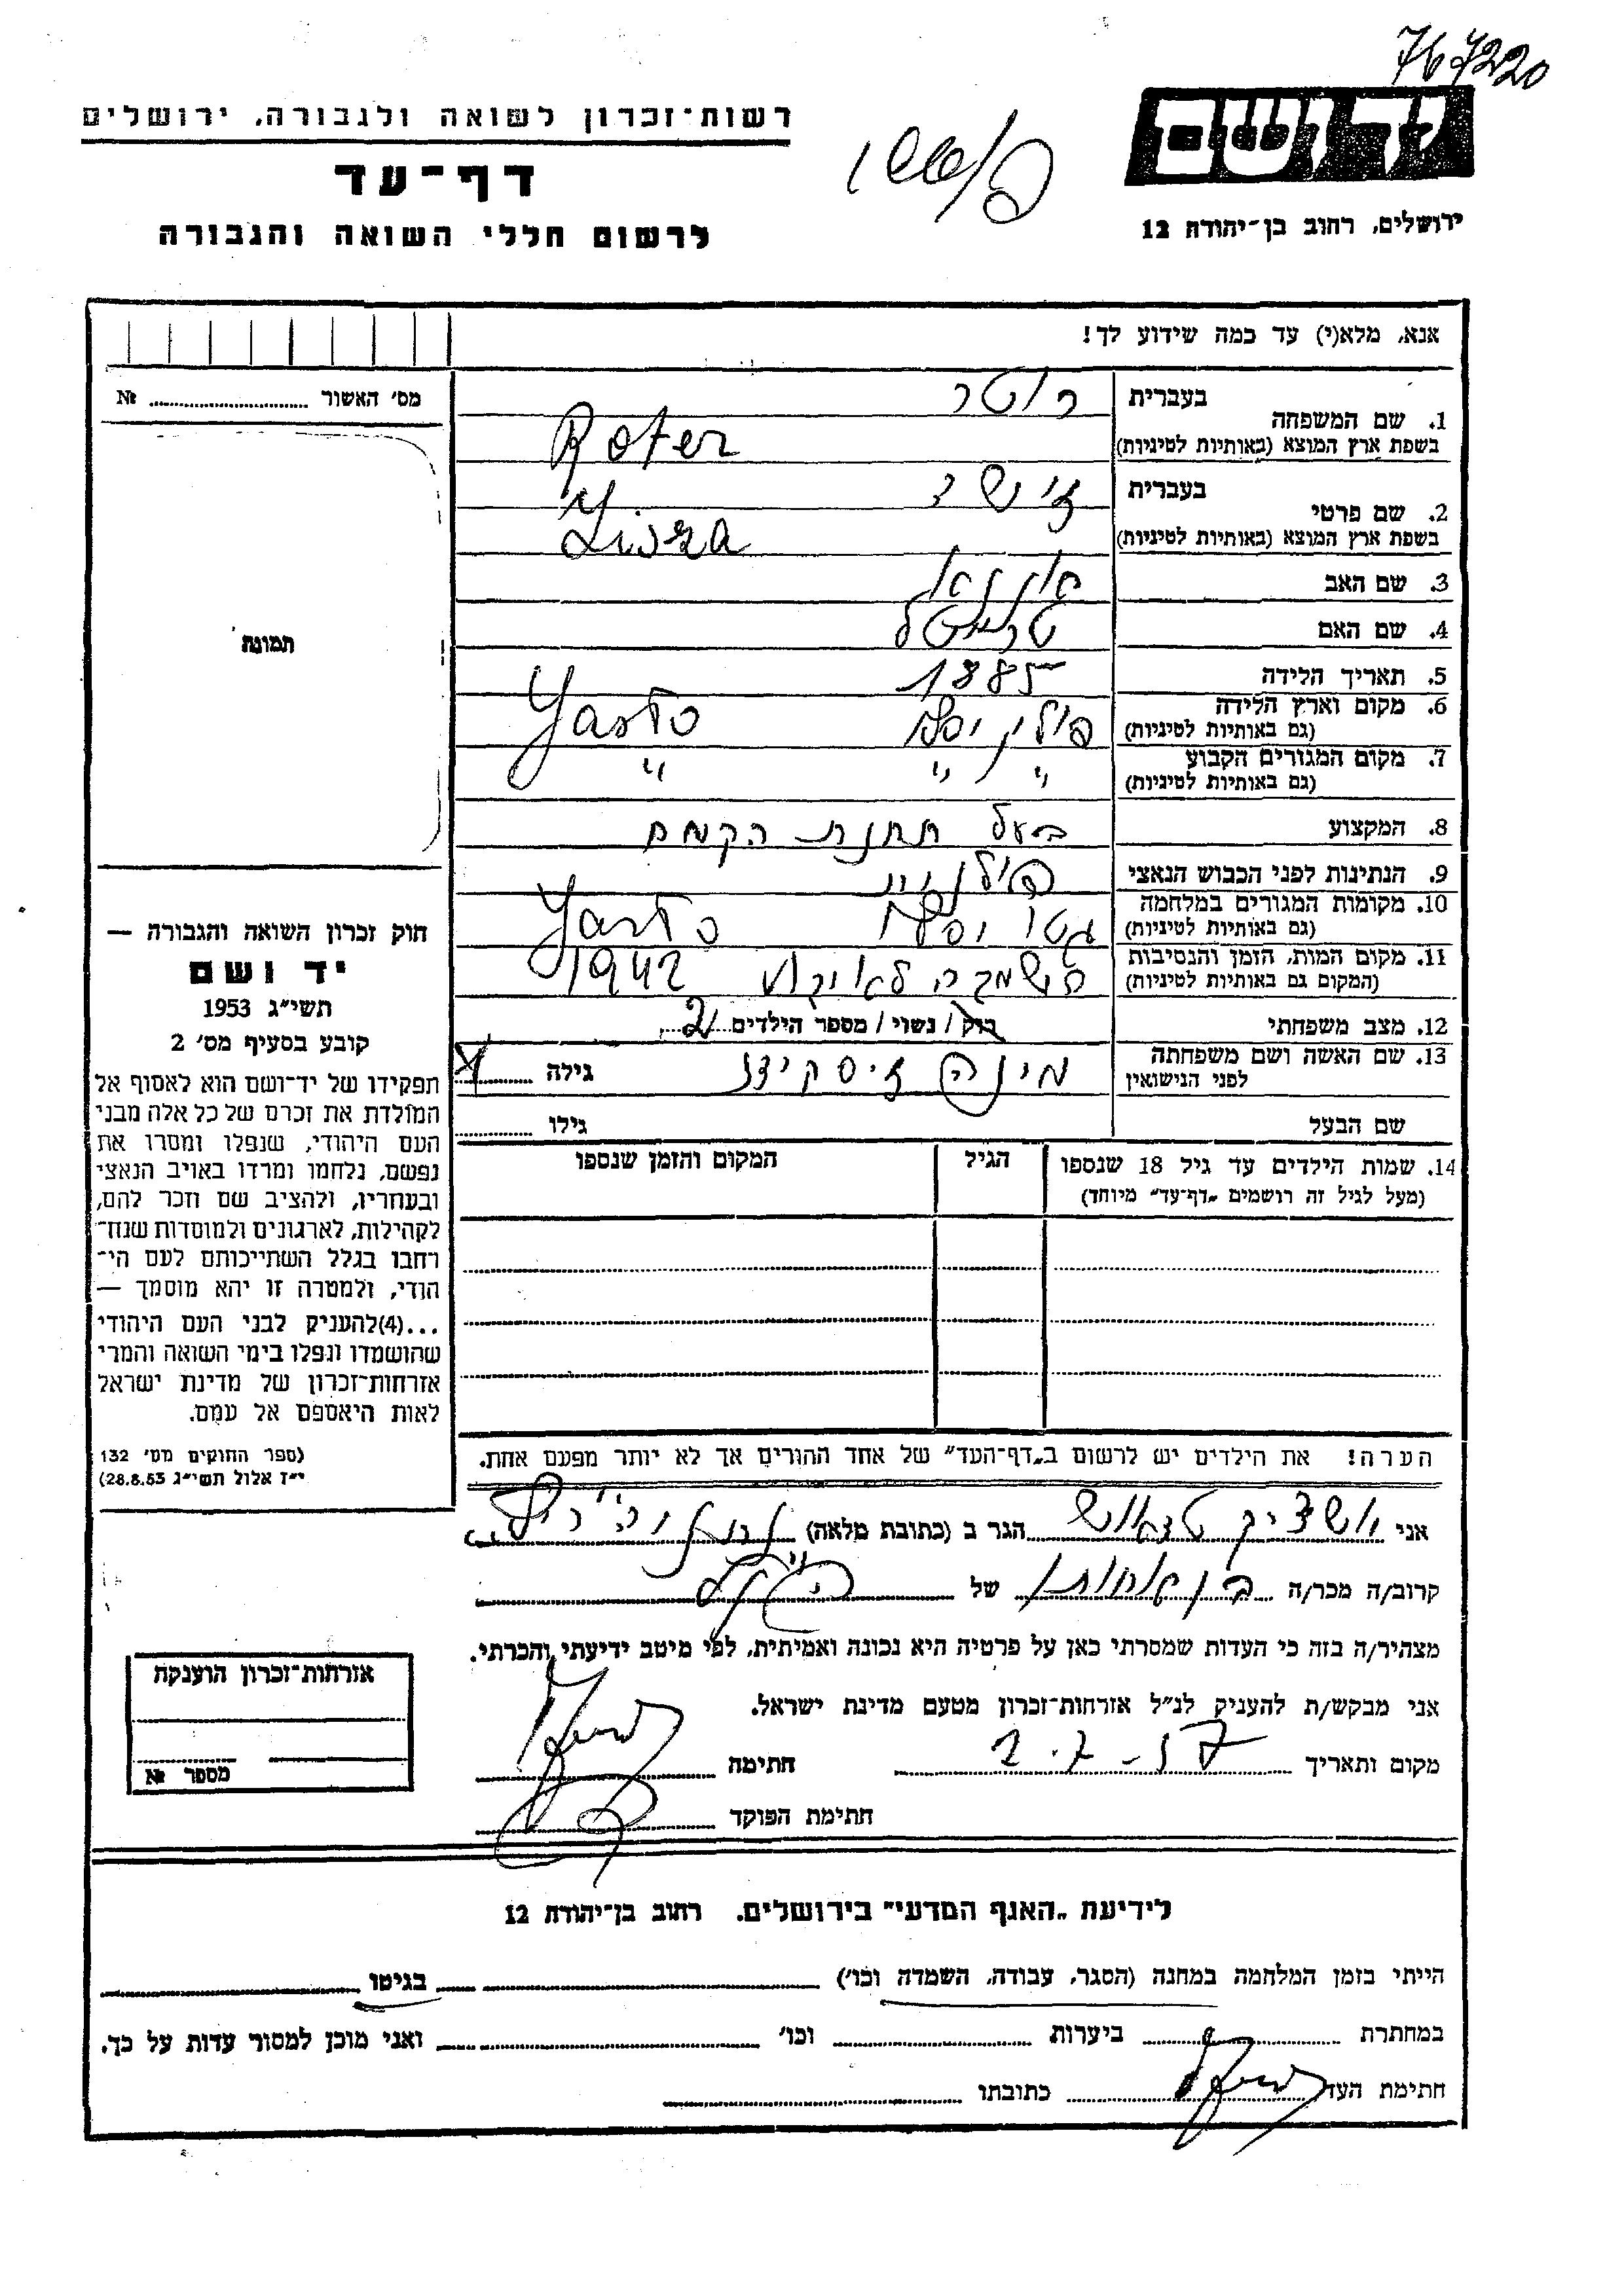 767220
יד ושם
ירושלים, רחוב בן־יהודה 12
רשות־זכרון לשואה ולגבורה, ירושלים
דף־עד
לרשום חללי השואה והגבורה
אנא, מלא(י) עד כמה שידוע לך!
מס׳ האשור № 
תמונה
בעברית רוטר
1. שם המשפחה
בשפת ארץ המוצא (באותיות לטיניות) Roter
בעברית
2. שם פרטי
בשפת ארץ המוצא (באותיות לטיניות)
3. שם האב
4. שם האם
5. תאריך הלידה 1885
6. מקום וארץ הלידה פולין יסלו Jasło
(גם באותיות לטיניות)
7. מקום המגורים הקבוע " " "
(גם באותיות לטיניות)
8. המקצוע בעל תחנת הקמח
9. הנתינות לפני הכבוש הנאצי פולנית
10. מקומות המגורים במלחמה גטו יסלו Jasło
(גם באותיות לטיניות)
11. מקום המות, הזמן והנסיבות 1942
(המקום גם באותיות לטיניות)
12. מצב משפחתי רוק / נשוי / מספר הילדים 2
13. שם האשה ושם משפחתה מינה
לפני הנישואין
גילה
שם הבעל גילו
14. שמות הילדים עד גיל 18 שנספו הגיל המקום והזמן שנספו
(מעל לגיל זה רושמים „דף־עד״ מיוחד)
חוק זכרון השואה והגבורה —
יד ושם
תשי״ג 1953
קובע בסעיף מס׳ 2
תפקידו של יד־ושם הוא לאסוף אל
המולדת את זכרם של כל אלה מבני
העם היהודי, שנפלו ומסרו את
נפשם, נלחמו ומרדו באויב הנאצי
ובעוזריו, ולהציב שם וזכר להם,
לקהילות, לארגונים ולמוסדות שנח־
רחבו בגלל השתייכותם לעם הי־
הודי, ולמטרה זו יהא מוסמך —
...(4)להעניק לבני העם היהודי
שהושמדו ונפלו בימי השואה והמרי
אזרחות־זכרון של מדינת ישראל
לאות היאספם אל עמם.
(ספר החוקים מס׳ 132
י״ז אלול תשי״ג 28.8.53)
הערה! את הילדים יש לרשום ב„דף־העד״ של אחד ההורים אך לא יותר מפעם אחת.
אני הגר ב (כתובת מלאה)
קרוב/ה מכר/ה בן אחותו של
מצהיר/ה בזה כי העדות שמסרתי כאן על פרטיה היא נכונה ואמיתית, לפי מיטב ידיעתי והכרתי.
אני מבקש/ת להעניק לנ״ל אזרחות־זכרון מטעם מדינת ישראל.
מקום ותאריך 2.7-57 חתימה
חתימת הפוקד
אזרחות־זכרון הוענקה
מספר №
לידיעת „האגף המדעי״ בירושלים. רחוב בן־יהודה 12
הייתי בזמן המלחמה במחנה (הסגר, עבודה, השמדה וכו׳) בגיטו
במחתרת ביערות וכו׳ ואני מוכן למסור עדות על כך.
חתימת העד כתובתו